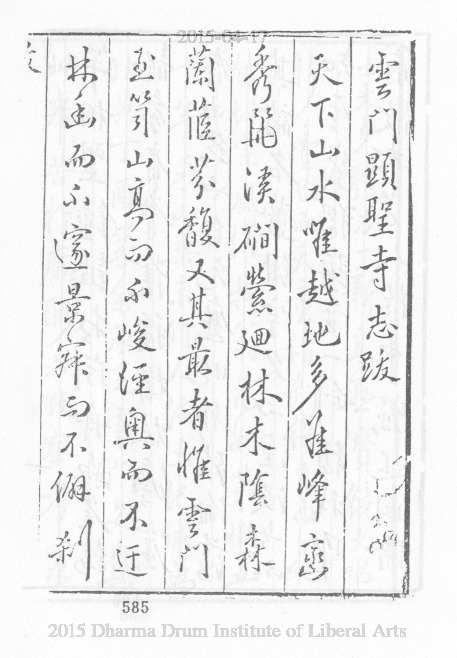 2015-04-17
雲門顯聖寺志跋
天下山水唯越地多佳峰巒
秀䕺溪磵縈迴林木陰森
蘭蕕芬馥又其最者惟雲門
玉笥山髙而不峻徑奥而不迂
林幽而不邃景寂而不僻刹
585
2015 Dharma Drum Institute of Liberal Arts